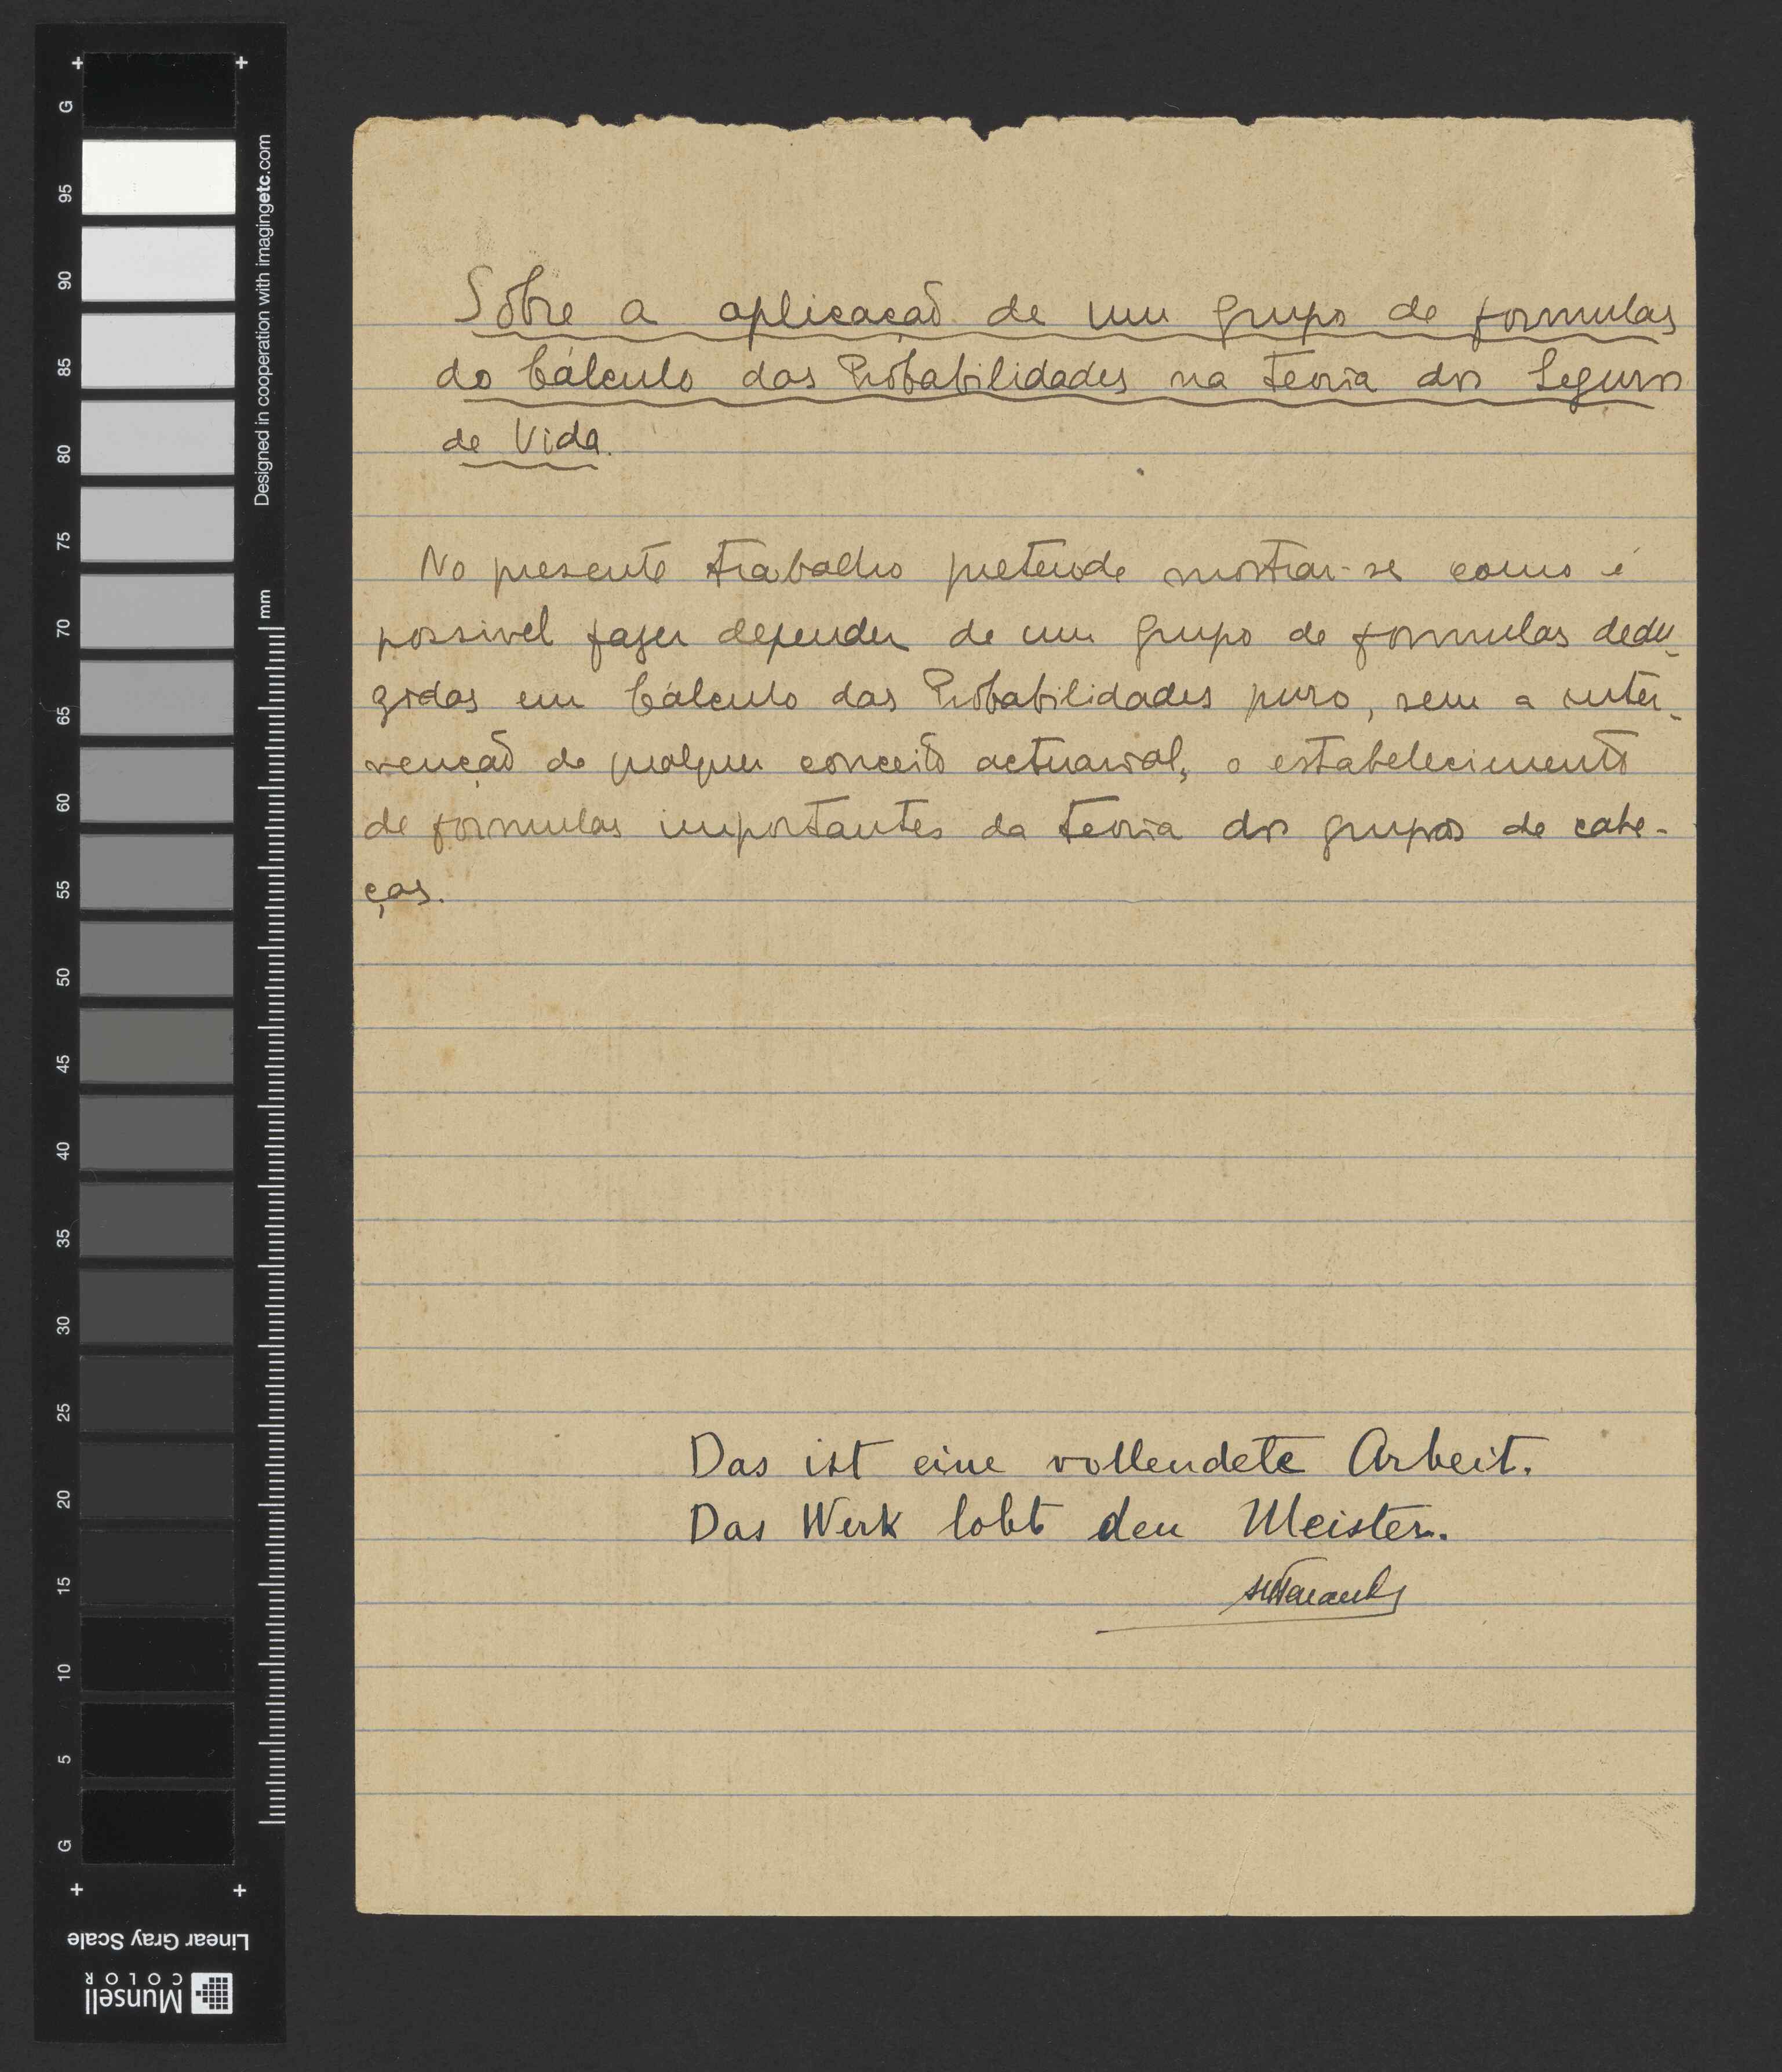 Sôbre a aplicação de um grupo de formulas
do Cálculo das Probabilidades na teoria dos Seguros
de Vida.
No presente trabalho pretende mostrar-se como é
possivel fazer depender de um grupo de formulas dedu-
zidas em Cálculo das Probabilidades puro, sem a inter-
venção de qualquer conceito actuarial, o estabelecimento
de formulas importantes da teoria dos grupos de cabe-
ças.
Das ist eine vollendete Arbeit.
Das Werk lobt den Meister.
G
95
90
85
80
75
70
65
60
55
50
45
40
35
30
25
20
15
10
5
G
Designed in cooperation with imagingetc.com
mm
Linear Gray Scale
Munsell
COLOR